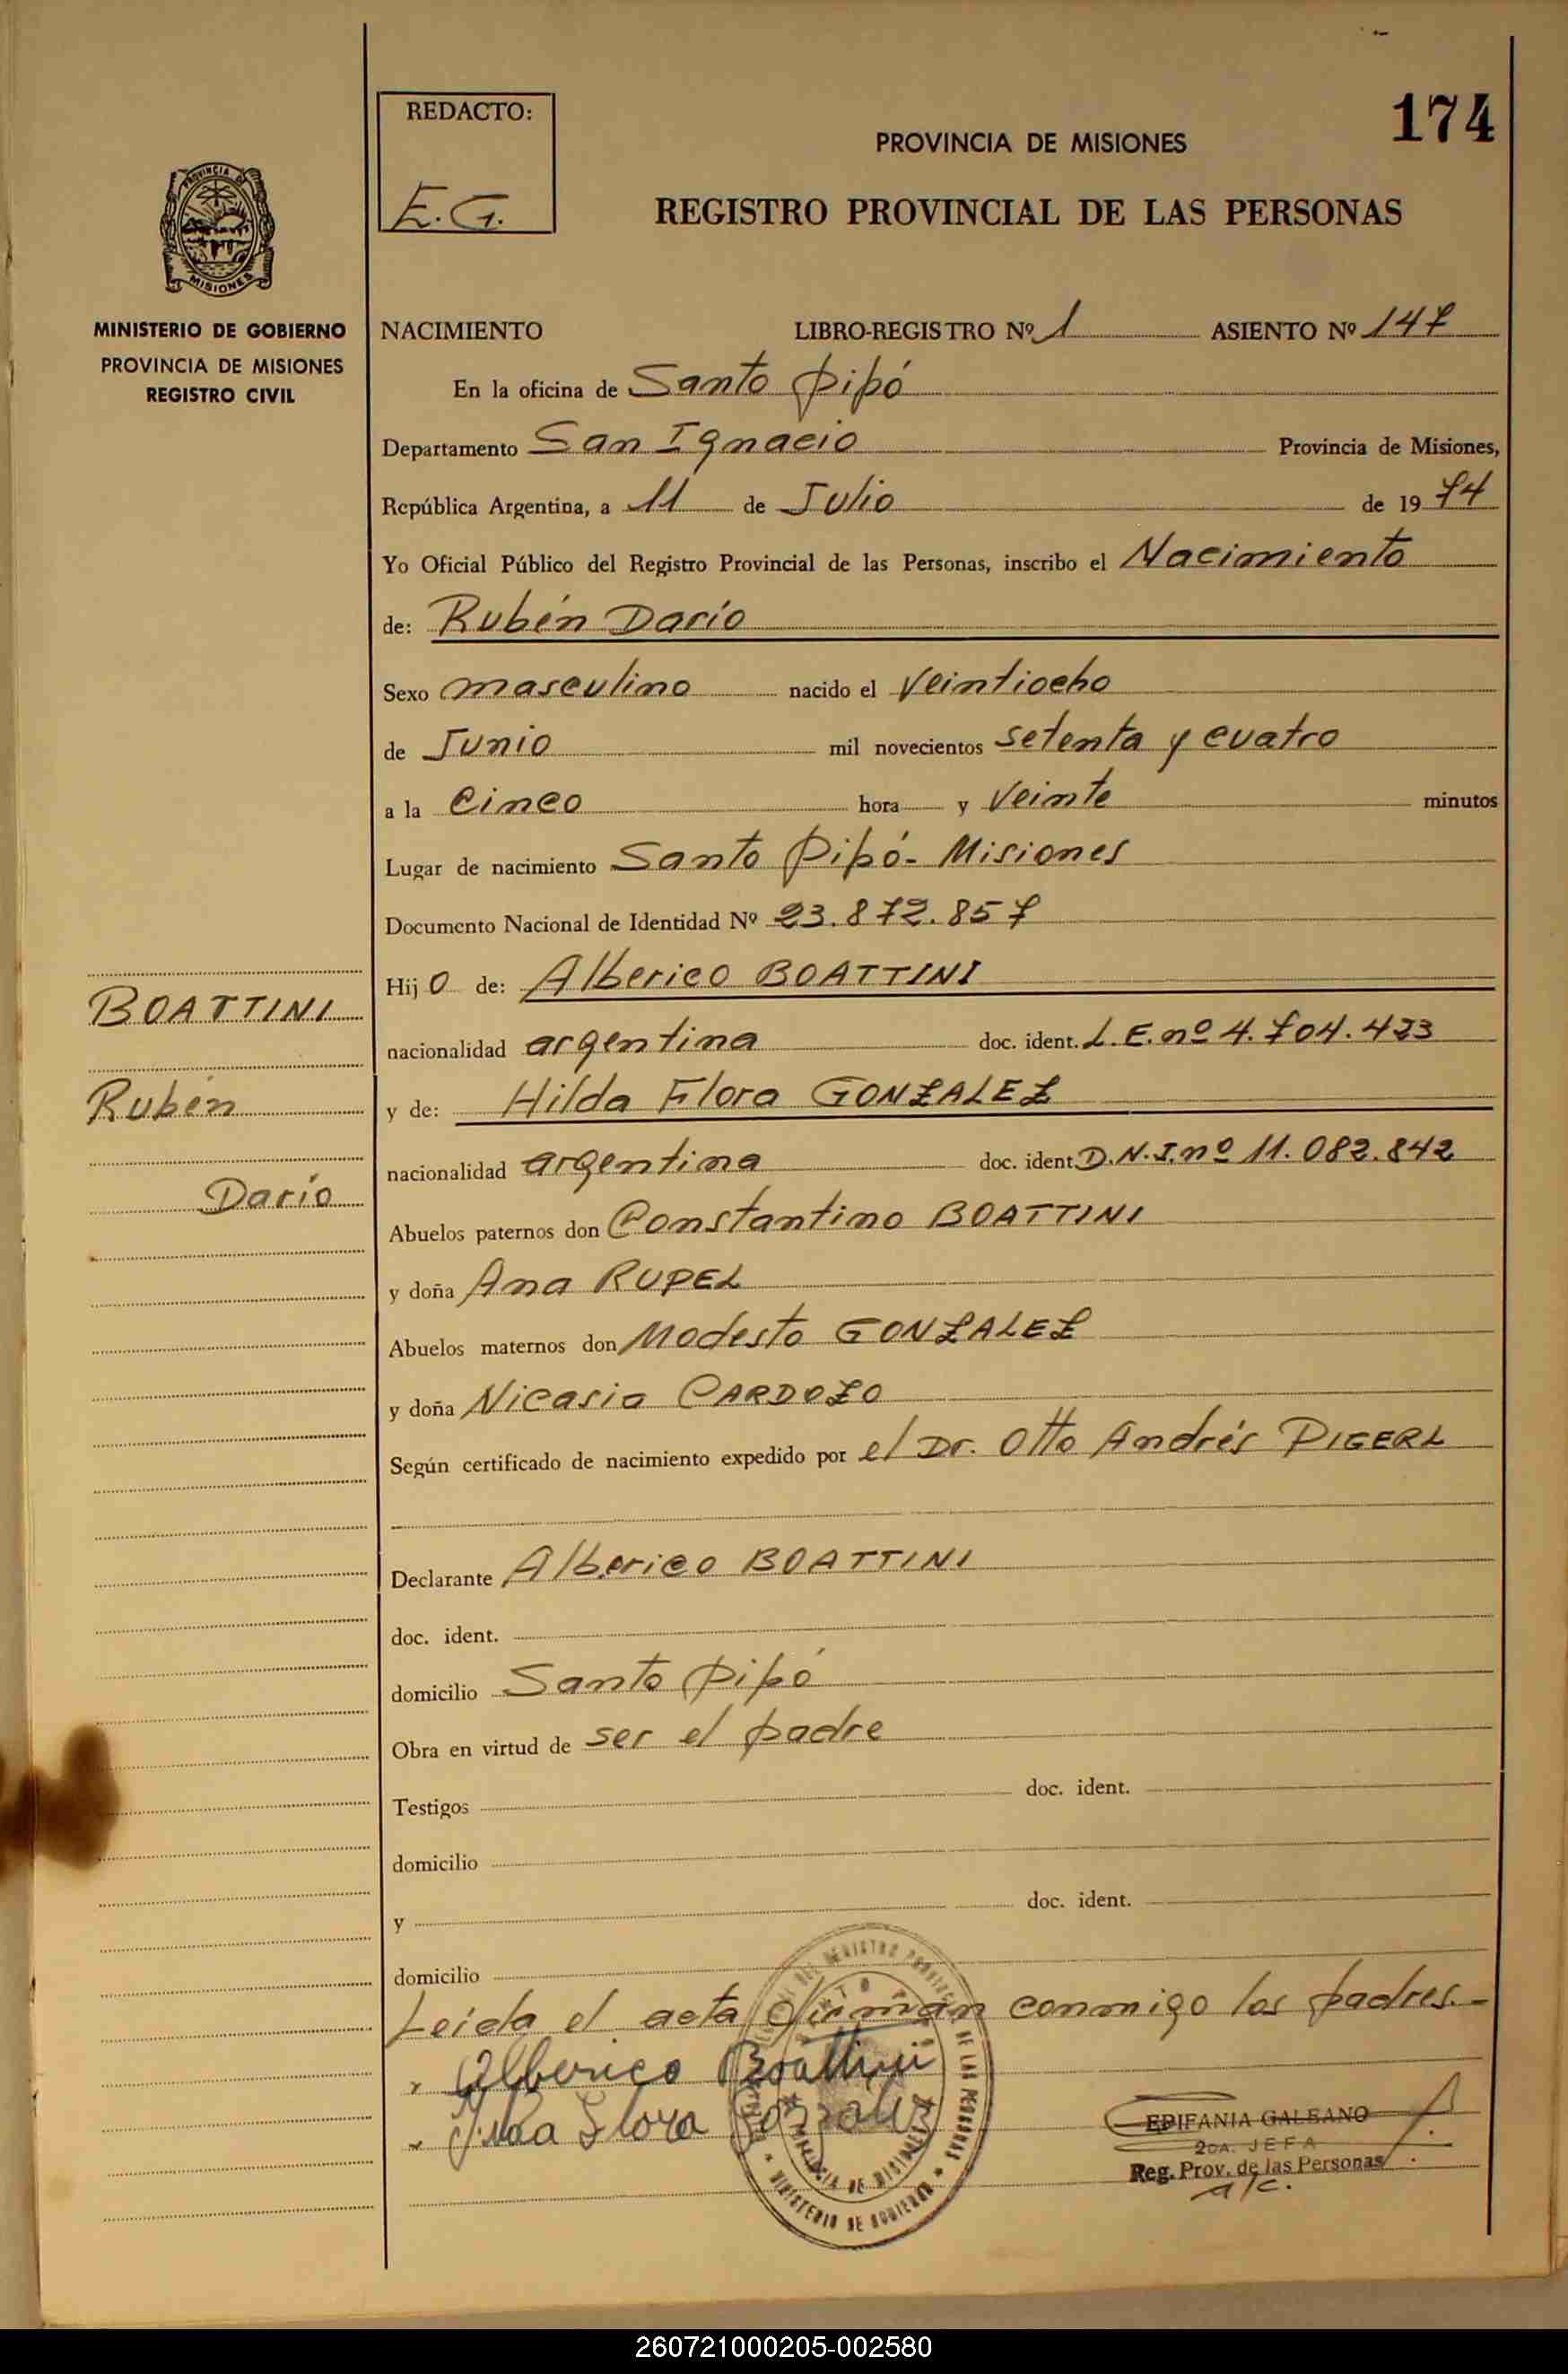 174
REDACTO:
E. G.
PROVINCIA DE MISIONES
REGISTRO PROVINCIAL DE LAS PERSONAS
PROVINCIA DE
MISIONES
MINISTERIO DE GOBIERNO
PROVINCIA DE MISIONES
REGISTRO CIVIL
NACIMIENTO LIBRO-REGISTRO Nº 1 ASIENTO Nº 147
En la oficina de Santo Pipó
Departamento San Ignacio Provincia de Misiones,
República Argentina, a 11 de Julio de 1974
Yo Oficial Público del Registro Provincial de las Personas, inscribo el Nacimiento
de: Rubén Darío
Sexo masculino nacido el Veintiocho
de Junio mil novecientos setenta y cuatro
a la cinco hora y Veinte minutos
Lugar de nacimiento Santo Pipó - Misiones
Documento Nacional de Identidad Nº 23.872.857
Hijo de: Alberico BOATTINI
nacionalidad argentina doc. ident. L.E. nº 4.704.423
y de: Hilda Flora GONZALEZ
nacionalidad argentina doc. ident. D.N.I. nº 11.082.842
Abuelos paternos don Constantino BOATTINI
y doña Ana RUPEL
Abuelos maternos don Modesto GONZALEZ
y doña Nicasia CARDOZO
Según certificado de nacimiento expedido por el Dr. Otto Andrés PIGERL
Declarante Alberico BOATTINI
doc. ident.
domicilio Santo Pipó
Obra en virtud de ser el padre
Testigos doc. ident.
domicilio
y doc. ident.
domicilio
Leída el acta firman conmigo los padres.-
Alberico Boattini
Hilda Flora Gonzalez
BOATTINI
Rubén
Darío
REGISTRO PROVINCIAL DE LAS PERSONAS
PROVINCIA DE MISIONES
* MINISTERIO DE GOBIERNO *
EPIFANIA GALEANO
2DA. JEFA
Reg. Prov. de las Personas
a/c.
260721000205-002580